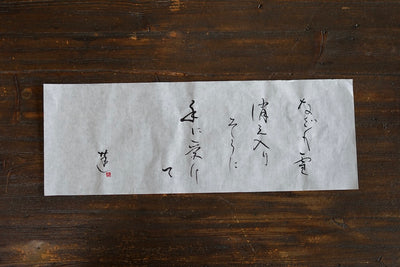 なごり雪
消え入り
そうに
手に受け
て